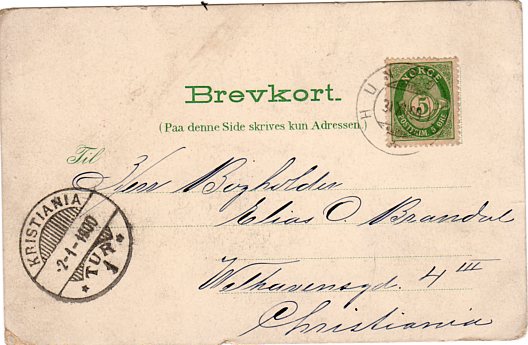 Brevkort.
(Paa denne Side skrives kun Adressen)
NORGE
5
POSTFRIM. 5 ØRE
HUN
Til
Herr Bogholder
Elias O. Brandal
Welhavensgd. 4 III
Christiania
KRISTIANIA
-2-1-1900
* TUR *
1